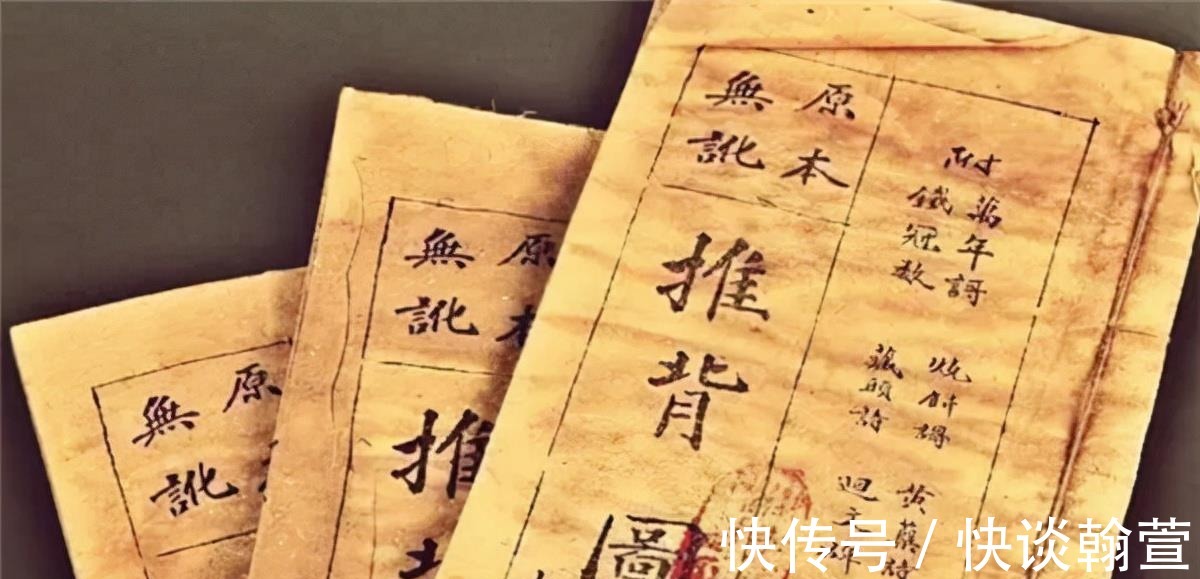 附
萬年謌
鐵冠数
燒餅謌
藏頭詩
黃蘗
迴文
原本
無訛
推背圖
原本
無訛
推背
原
無訛
快传号 / 快谈翰萱